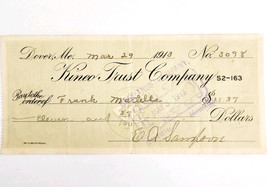 Dover, Me. Mar 29 1913 No. 3098
Kineo Trust Company 52-163
Pay to the order of Frank $11.37
Eleven and 37/100 Dollars
E. A. Sampson